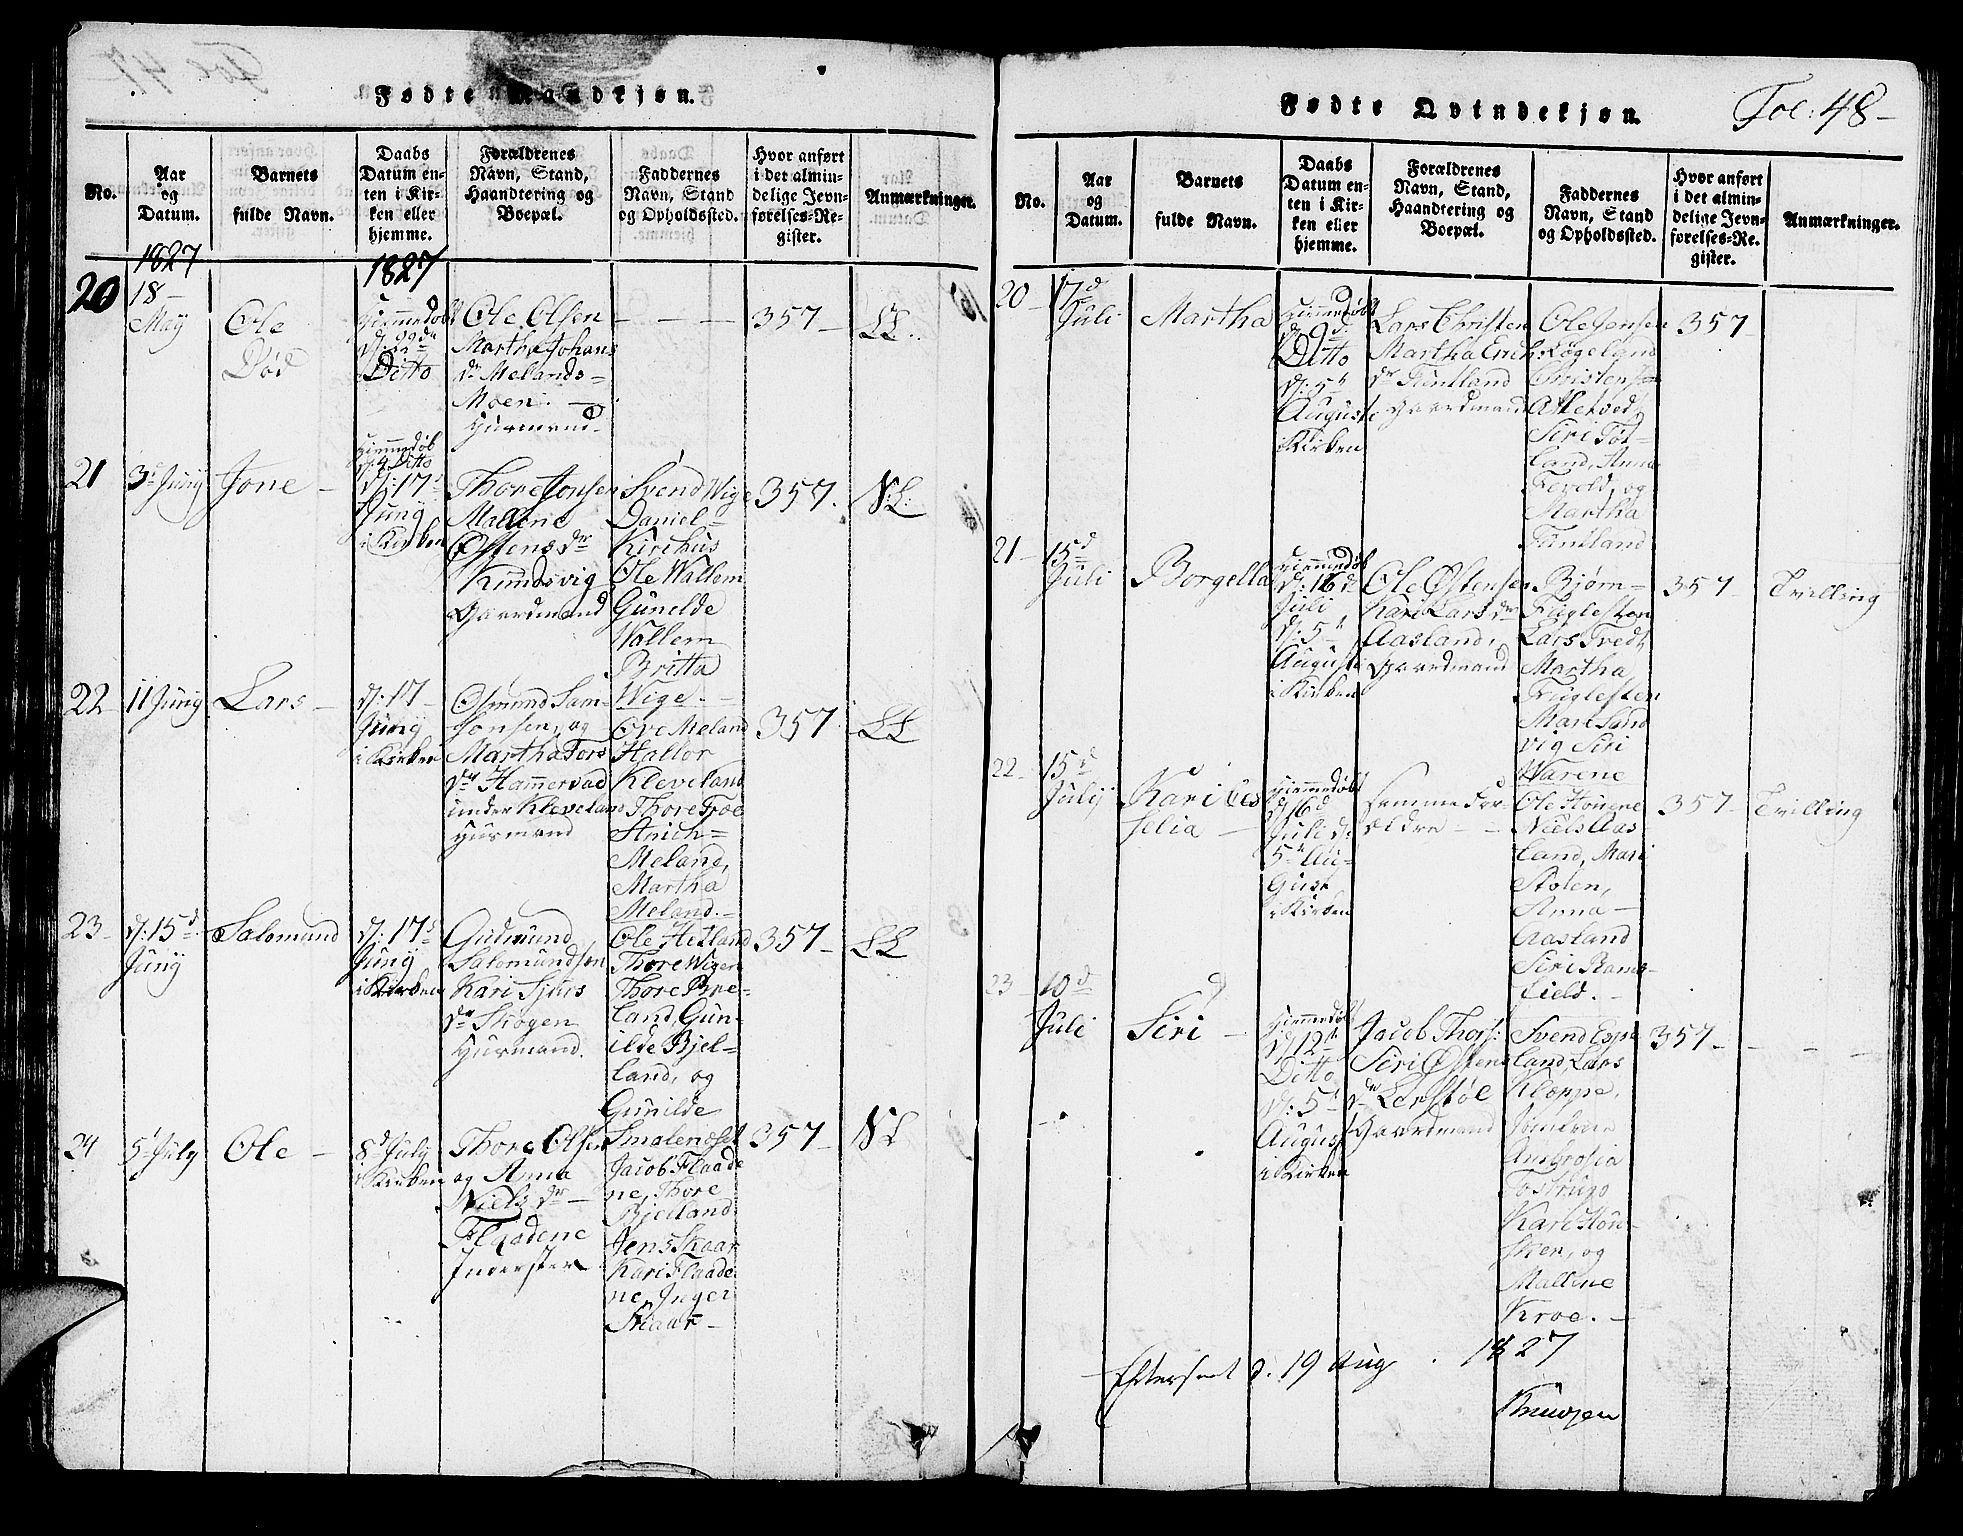 Fødte Mandkjøn.
No.
Aar
og
Datum.
Barnets
fulde Navn.
Daabs
Datum en-
ten i Kir-
ken eller
hjemme.
Forældrenes
Navn, Stand,
Haandtering og
Boepæl.
Faddernes
Navn, Stand
og Opholdssted.
Hvor anført
i det almin-
delige Jevn-
førelses-Re-
gister.
Anmærkninger.
1827
1827
20
18
May
Ole
Død
Hjemmedøbt
Ditto
Ole Olsen
Martha Johans
dr Melands-
Moen.
Huusmand.
357
LL.
21
3d Juny
Jone
Hjemmedøb
d: 4 Ditto
d: 17d
Juny
i Kirken
Thore Jonsen
Mallene
Østens dr
Kundsvig
Gaardmand
Svend Wige
Daniel
Kirchus
Ole Wallem
Gunilde
Wallem
Britta
Wige.
357.
N:L:
22
11 Juny
Lars
d: 17
Juny
i Kirken
Osmund Sam-
sonsen, og
Martha Tors
dr Hammersad
under Kleveland
Husmand
Ove Meland
Hallor
Kleveland
Thore Froe
Meland,
Martha
Meland.
357
LL
23
d: 15d
Juny
Salomund
d: 17d
Juny
i Kirken
Gudmund
Salomundsen
Kari Sjurs
dr Skogen
Husmand.
Ole Hetland
Thore Wigen
Thore Bre-
land, Gun-
ilde Bjel-
land, og
Gunilde
Smalenæset
357
LL
24
5 July
Ole
8d July
i Kirken
Thore Olsen
og Anna
Niels dr
Flaadene
Inderster
Jacob Flaade
ne, Thore
Bjelland
Jens Skaar
Kari Flaade
ne, Inger
Skaar
357
NL
Fødte Qvindekjøn.
Fol: 48
No.
Aar
og
Datum.
Barnets
fulde Navn.
Daabs
Datum en-
ten i Kir-
ken eller
hjemme.
Forældrenes
Navn, Stand,
Haandtering og
Boepæl.
Faddernes
Navn, Stand
og Opholdssted.
Hvor anført
i det almin-
delige Jevn-
førelses-Re-
gister.
Anmærkninger.
20
17d
Juli
Martha
Hjemmedøbt
Ditto
d: 5t
August
i Kirken
Lars Christen
Martha Erichs
dr Funtland
Gaardmand
Ole Jensen
Røgelund
Christens
Siri Føt-
land, Anna
Fevold, og
Martha
Funtland
357
21
15d
Juli
Borgella
Hjemmedøb
d: 16d
Juli
d: 5t
August
i Kirken
Ole Østensen
Kari Lars dr
Aasland,
Gaardmand
Bjørn
Fuglesten
Lars Tvedt,
Martha
Fuglesten
Mari Sand
vig Siri
Warene
357
Tvilling
22
15d
July
Kari Ces
selia
Hjemmedøbt
d 16d
Juli d:
5te Au-
gust
i Kirken
samme For-
ældre
Ole Houene
Niels Aas
land, Mari
Stolen,
Anna
Aasland
Siri Rams-
field.
357
Tvilling
23
10d
Juli
Siri
Hjemmedøbt
d 12t
Ditto
d: 5t
August
i Kirken
Jacob Thors:
Siri Østens
dr Lerstøl
Gaardmand
Svend Espe
land, Lars
Kloppe,
Ambrosia
Kari Høn-
sken, og
Mallene
Kroe.
357
Efterseet d. 19 Aug 1827
Knudsen